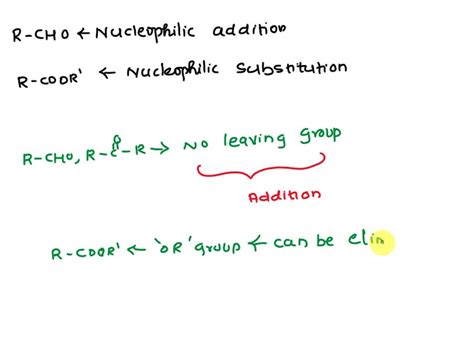 R-CHO ← Nucleophilic addition
R-COOR' ← Nucleophilic Substitution
O
R-CHO, R-C-R → No leaving group
Addition
R-COOR' ← 'OR' group ← can be elim